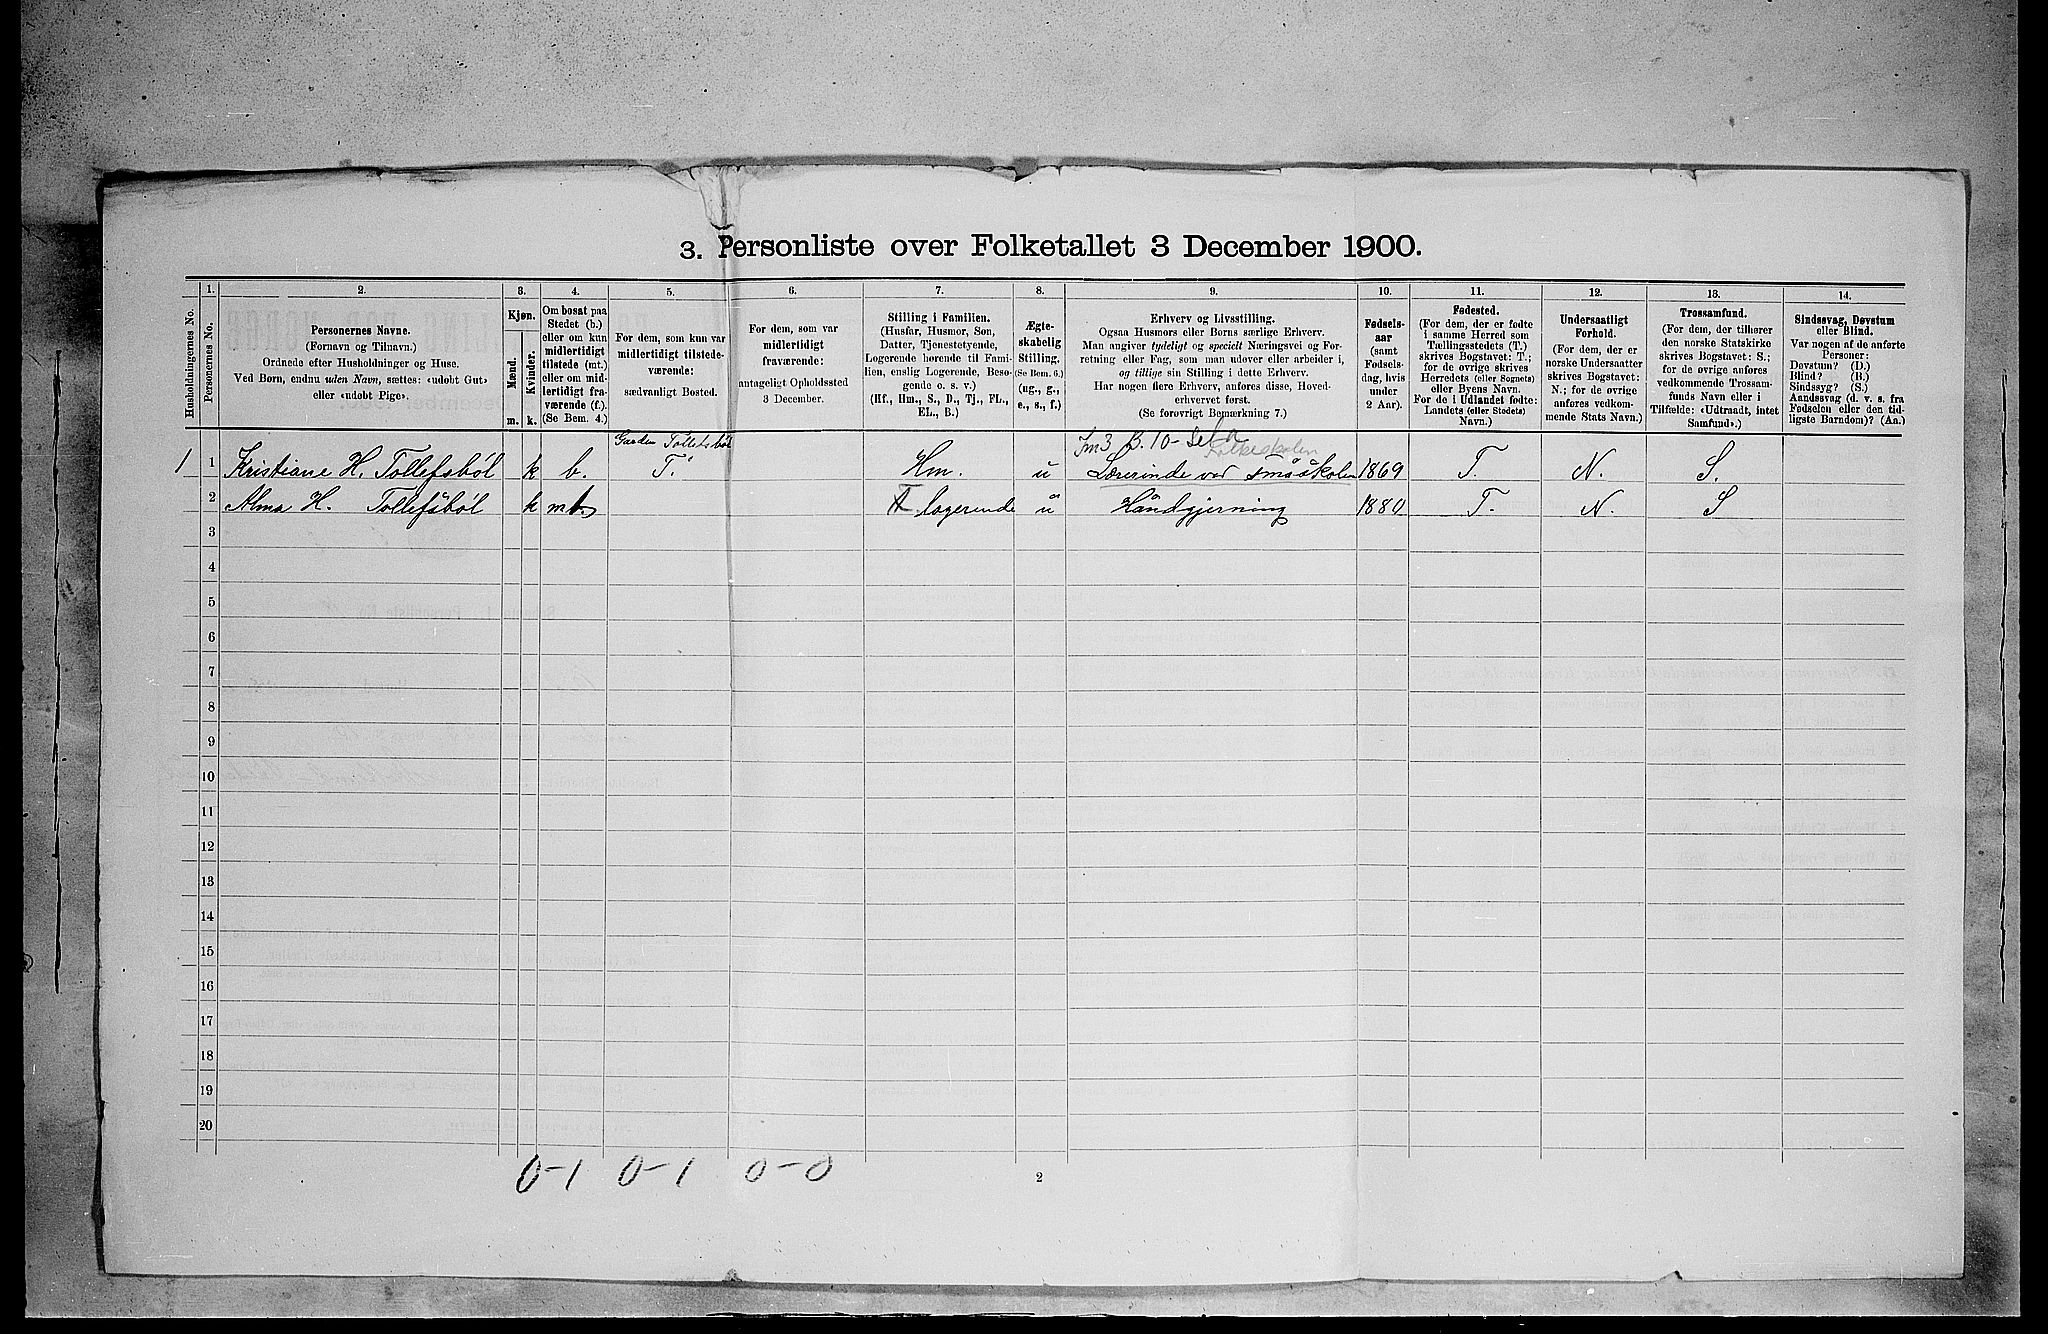 3. Personliste over Folketallet 3 December 1900.
1. 2. 3. 4. 5. 6. 7. 8. 9. 10. 11. 12. 13. 14.
Husholdningernes No.
Personernes No.
Personernes Navne.
(Fornavn og Tilnavn.)
Ordnede efter Husholdninger og Huse.
Ved Børn, endnu uden Navn, sættes: «udøbt Gut»
eller «udøbt Pige».
Kjøn.
Mænd.
Kvinder.
m. k.
Om bosat paa
Stedet (b.)
eller om kun
midlertidigt
tilstede (mt.)
eller om mid-
lertidigt fra-
værende (f.)
(Se Bem. 4.)
For dem, som kun var
midlertidigt tilstede-
værende:
sædvanligt Bosted.
For dem, som var
midlertidigt
fraværende:
antageligt Opholdssted
3 December.
Stilling i Familien.
(Husfar, Husmor, Søn,
Datter, Tjenestetyende,
Logerende hørende til Fami-
lien, enslig Logerende, Besø-
gende o. s. v.)
(Hf., Hm., S., D., Tj., FL.,
EL., B.)
Ægte-
skabelig
Stilling.
(Se Bem. 6.)
(ug., g.,
e., s., f.)
Erhverv og Livsstilling.
Ogsaa Husmors eller Børns særlige Erhverv.
Man angiver tydeligt og specielt Næringsvei og For-
retning eller Fag, som man udøver eller arbeider i,
og tillige sin Stilling i dette Erhverv.
Har nogen flere Erhverv, anføres disse, Hoved-
erhvervet først.
(Se forøvrigt Bemærkning 7.)
Fødsels-
aar
(samt
Fødsels-
dag, hvis
under
2 Aar).
Fødested.
(For dem, der er fødte
i samme Herred som
Tællingsstedets (T.)
skrives Bogstavet: T.;
for de øvrige skrives
Herredets (eller Sognets)
eller Byens Navn.
For de i Udlandet fødte:
Landets (eller Stedets)
Navn.)
Undersaatligt
Forhold.
(For dem, der er
norske Undersaatter
skrives Bogstavet:
N.; for de øvrige
anføres vedkom-
mende Stats Navn.)
Trossamfund.
(For dem, der tilhører
den norske Statskirke
skrives Bogstavet: S.;
for de øvrige anføres
vedkommende Trossam-
funds Navn eller i
Tilfælde: «Udtraadt, intet
Samfund».)
Sindssvag, Døvstum
eller Blind.
Var nogen af de anførte
Personer:
Døvstum? (D.)
Blind? (B.)
Sindssyg? (S.)
Aandssvag (d. v. s. fra
Fødselen eller den tid-
ligste Barndom)? (Aa.)
Gaarden Tollefsbøl
B. 10
Folkeskolen
1 1 Kristiane H. Tollefsbøl k b. T. Hm. u Lærerinde ved småskolen 1869 T. N. S.
2 Alma H. Tollefsbøl k logerende u Håndgjerning 1880 T. N. S
3
4
5
6
7
8
9
10
11
12
13
14
15
16
17
18
19
20
0-1 0-1 0-0
2